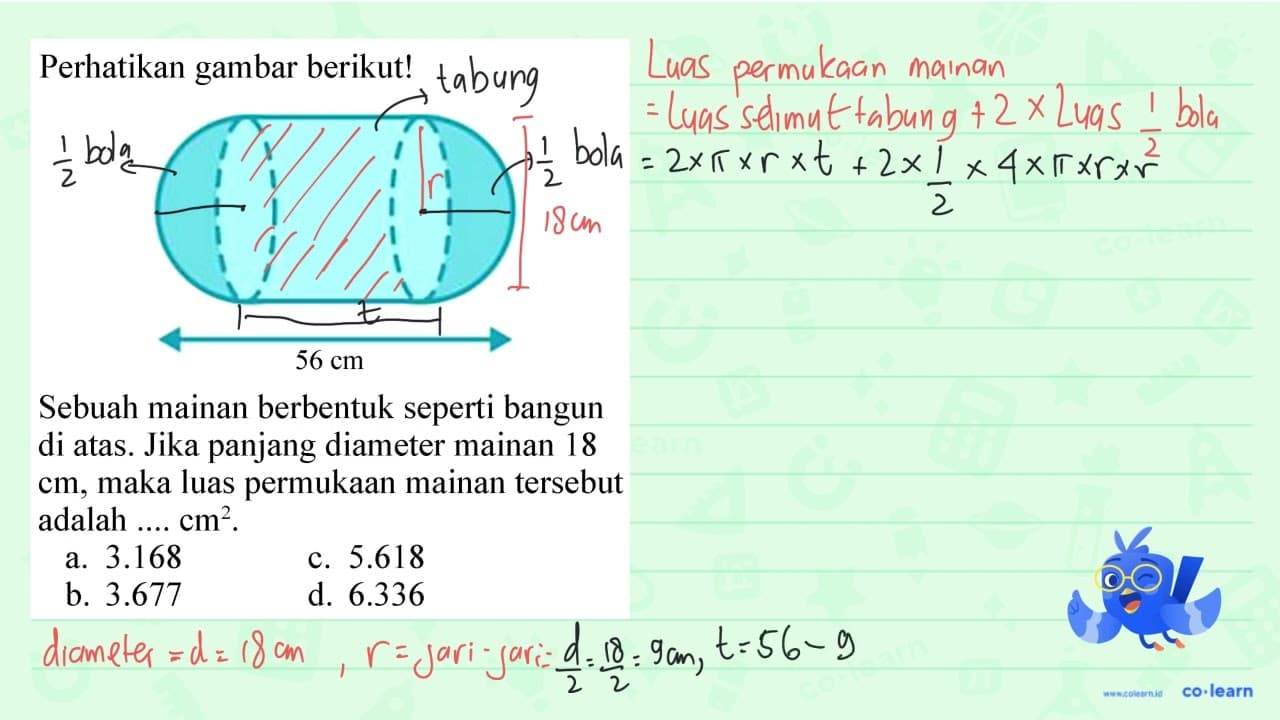 Perhatikan gambar berikut!
tabung
1/2 bola
1/2 bola
r
18 cm
t
56 cm
Sebuah mainan berbentuk seperti bangun
di atas. Jika panjang diameter mainan 18
cm, maka luas permukaan mainan tersebut
adalah .... cm².
a. 3.168 c. 5.618
b. 3.677 d. 6.336
Luas permukaan mainan
= luas selimut tabung + 2 × Luas 1/2 bola
= 2 × π × r × t + 2 × 1/2 × 4 × π × r × r
diameter = d = 18 cm , r = jari-jari = d/2 = 18/2 = 9 cm, t = 56 - 9
www.colearn.id co·learn